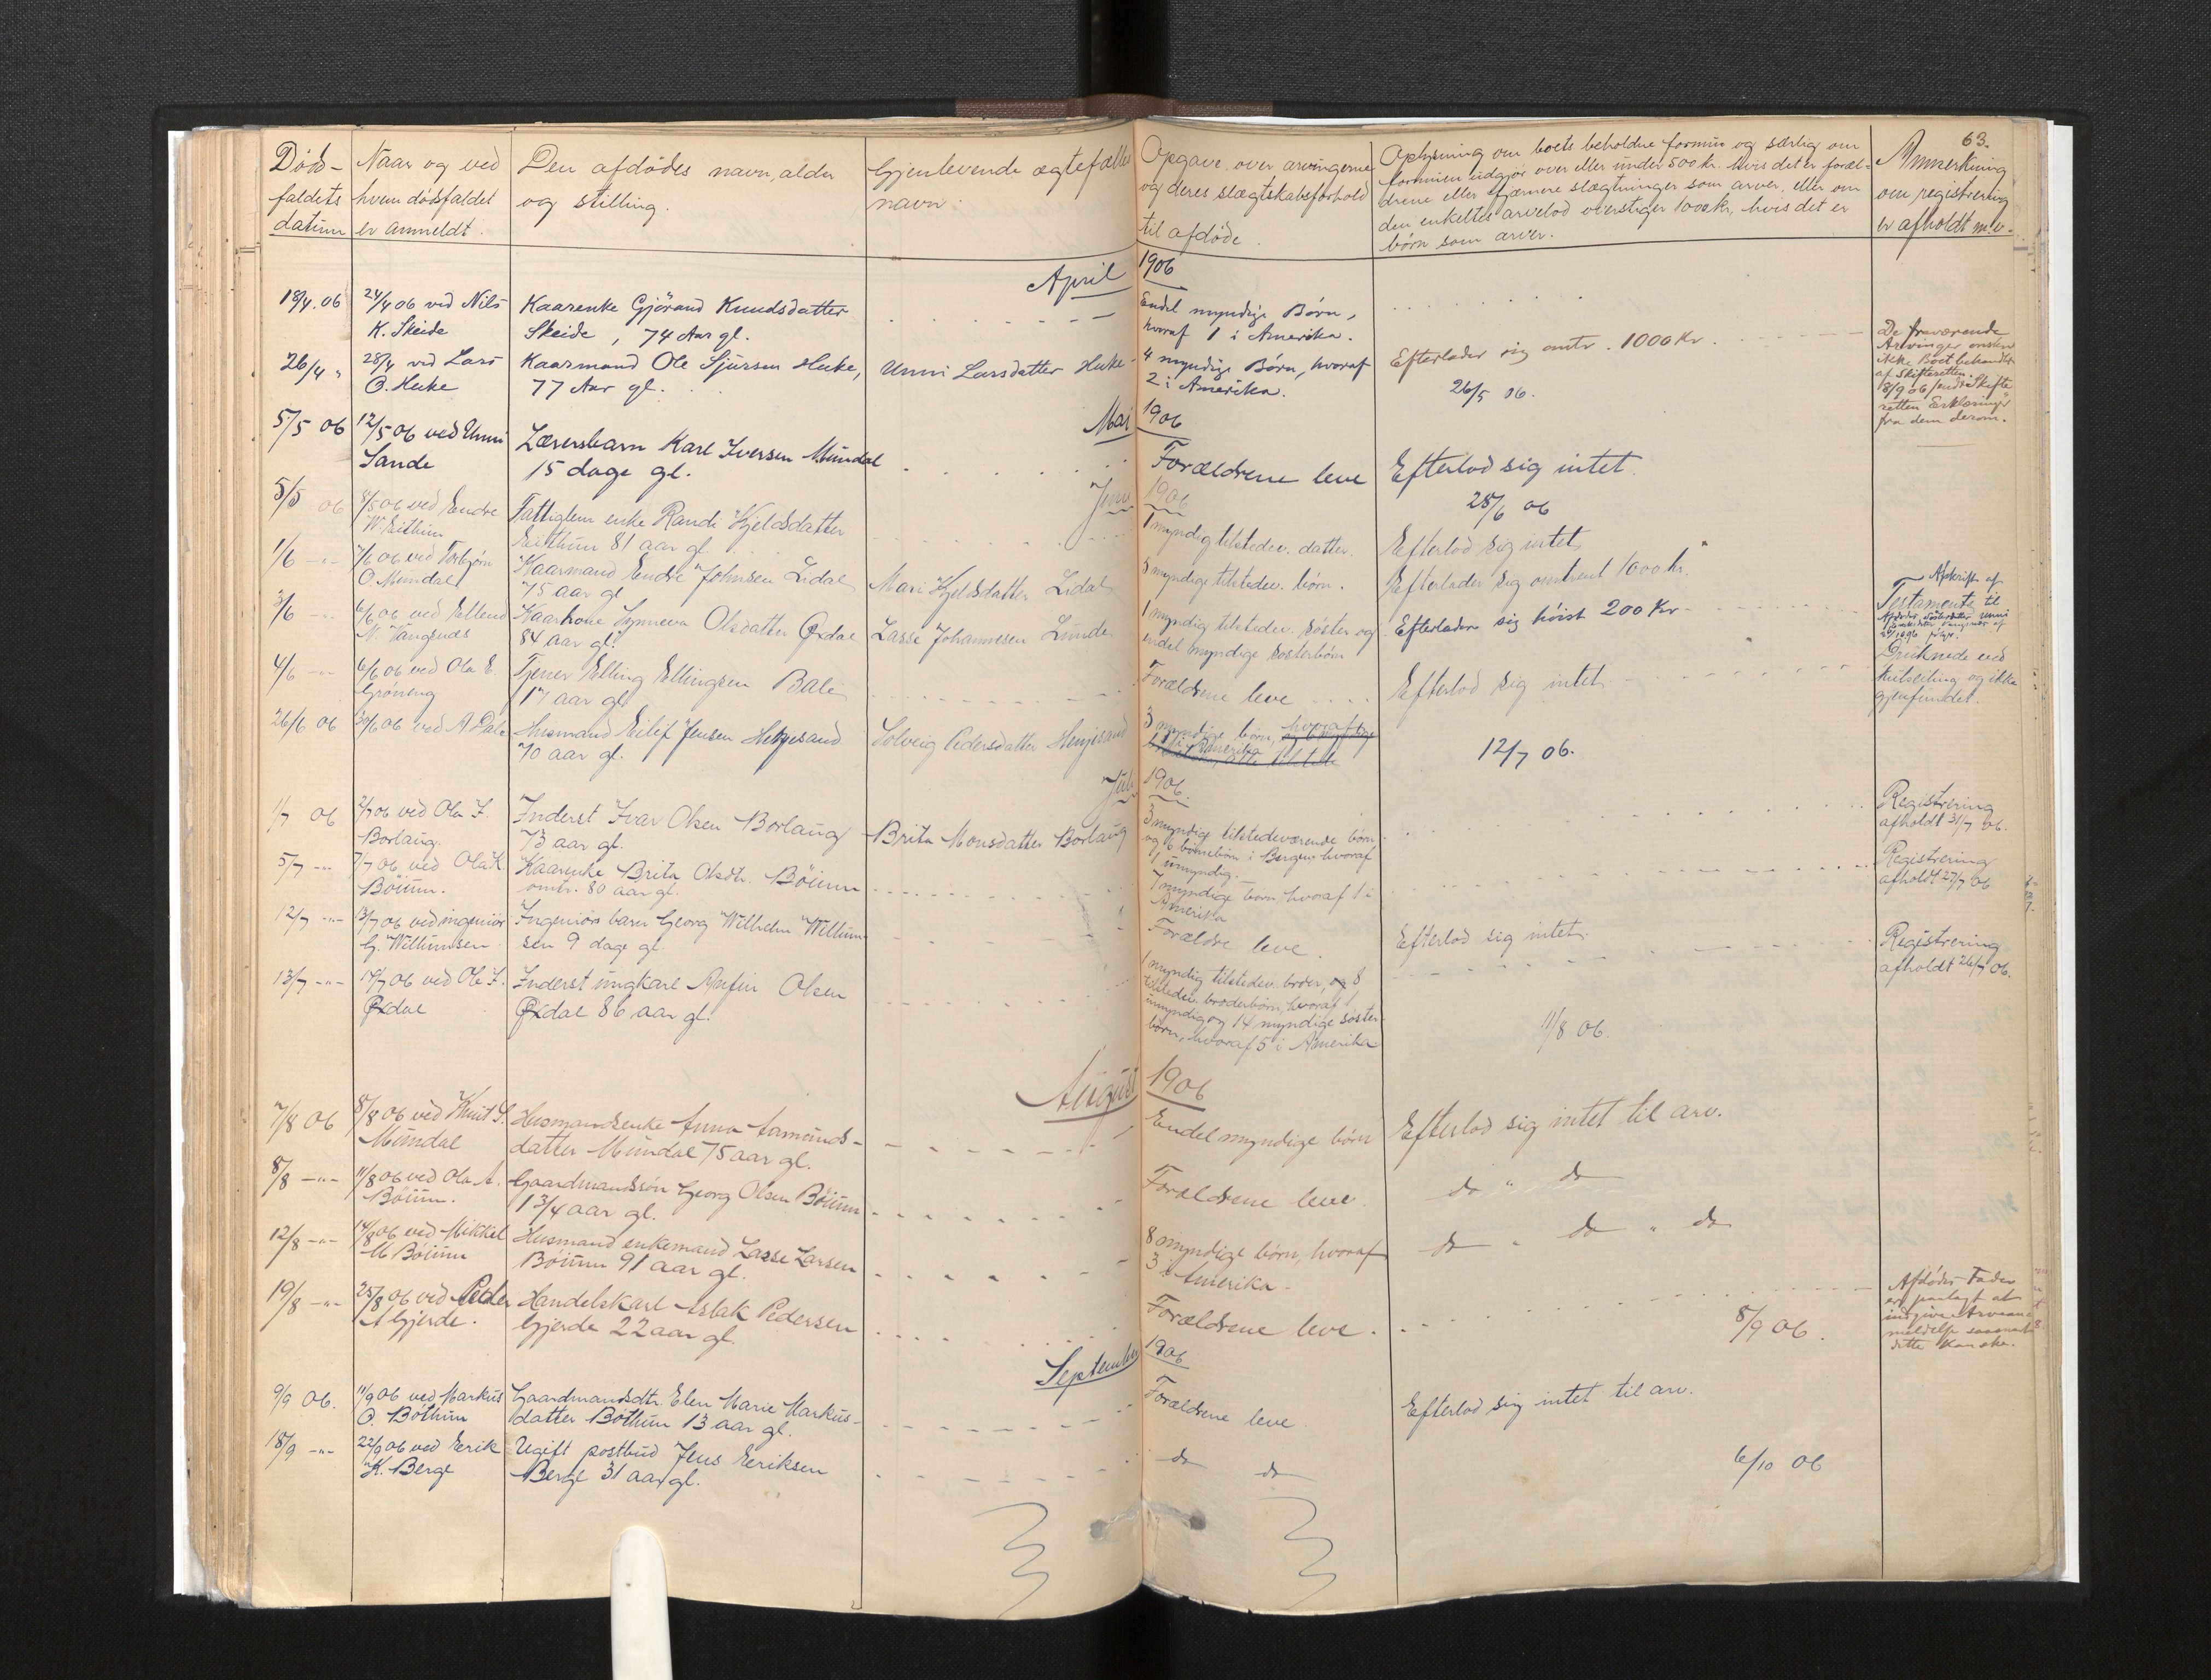 63.
Døds-
faldets
datum
Naar og ved
hvem dødsfaldet
er anmeldt.
Den afdødes navn, alder
og stilling.
Gjenlevende ægtefælles
navn.
Opgave over arvingerne
og deres slægtskabsforhold
til afdøde.
Oplysning om boets beholdne formue og særlig om
formuen udgjør over eller under 500 kr. hvis det er foræl-
drene eller fjærnere slægtninger som arver, eller om
den enkeltes arvelod overstiger 1000 kr, hvis det er
børn som arver.
Anmerkning
om registrering
er afholdt m.v.
April 1906
18/4. 06
24/4 06 ved Nils
K. Skeide
Kaarenke Gjørand Knudsdatter
Skeide, 74 Aar gl.
Endel myndige Børn,
hvoraf 1 i Amerika.
26/4 "
28/4 ved Lars
O. Huke
Kaarmand Ole Sjursen Huke,
77 Aar gl.
Unni Larsdatter Huke
4 myndige Børn, hvoraf
2 i Amerika.
Efterlader sig omtr. 1000 Kr.
26/5 06.
De fraværende
Arvinger ønsker
ikke Boet behandlet
af Skifteretten.
8/9 06 sendt Skifte
retten Erklæringer
fra dem derom.
Mai 1906
5/5 06
12/5 06 ved Unni
Sande
Lærersbarn Karl Iversen Mundal
15 dage gl.
Forældrene leve
Efterlod sig intet.
28/6 06
Juni 1906
5/5 06
8/5 06 ved Endre
W. Eithun
Fattiglem enke Randi Kjeldsdatter
Eitthun 81 aar gl.
1 myndig tilstedev. datter.
Efterlod sig intet
1/6 -"-
7/6 06 ved Torbjørn
O. Mundal
Kaarmand Endre Johnsen Lidal
75 aar gl
Mari Kjeldsdatter Lidal
5 myndige tilstedev. børn.
Efterlader sig omtrent 1000 kr
3/6 -"-
6/6 06 ved Ellend
N. Vangsnes
Kaarkone Synneva Olsdatter Øxdal
84 aar gl.
Lasse Johannesen Lunde
1 myndig tilstedev. søster og
endel myndige søsterbørn
Efterlader sig høist 200 Kr.
Afskrift af
Testamente til
4/6 -"-
6/6 06 ved Ola E.
Grøneng
Tjener Elling Ellingsen Bale
17 aar gl
Forældrene leve
Efterlod sig intet
Druknede ved
kulseiling og ikke
gjenfundet.
26/6 06
30/6 06 ved A Dale
Husmand Eilif Jensen Henjesand
70 aar gl.
Solveig Pedersdatter Henjesand
3 myndige børn, hvoraf
1 i Amerika
12/7 06.
Juli 1906.
1/7 06
2/7 06 ved Ola I.
Borlaug.
Inderst Ivar Olsen Borlaug
73 aar gl.
Brita Monsdatter Borlaug
3 myndige tilstedeværende børn
og 6 børnebørn i Bergen hvoraf
1 umyndig.
Registrering
afholdt 31/7 06.
5/7 -"-
7/7 06 ved Ola K.
Bøium.
Kaarenke Brita Olsdtr. Bøium
omtr. 80 aar gl.
7 myndige børn, hvoraf 1 i
Amerika
Registrering
afholdt 27/7 06
12/7 -"-
13/7 06 ved ingeniør
G. Willumsen
Ingeniørs barn Georg Wilhelm Willum-
sen 9 dage gl.
Forældre leve.
Efterlod sig intet
13/7 -"-
14/7 06 ved Ole I.
Øxdal
Inderst ungkarl Anfin Olsen
Øxdal 86 aar gl.
1 myndig tilstedev. broder, og 8
tilstedev. broderbørn, hvoraf 1
umyndig og 14 myndige søster-
børn, hvoraf 5 i Amerika
11/8 06.
Registrering
afholdt 26/7 06.
August 1906
7/8 06
8/8 06 ved Knut S.
Mundal
Husmandsenke Anna Aamunds-
datter Mundal 75 aar gl.
Endel myndige børn
Efterlod sig intet til arv.
8/8 -"-
11/8 06 ved Ola A.
Bøium.
Gaardmandssøn Georg Olsen Bøium
1 3/4 aar gl.
Forældrene leve.
do " do
12/8 -"-
14/8 06 ved Mikkel
M. Bøium
Husmand enkemand Lasse Larsen
Bøium 91 aar gl.
8 myndige børn, hvoraf
3 i Amerika.
do " do " do
19/8 -"-
25/8 06 ved Peder
A Gjerde.
Handelskarl Aslak Pedersen
Gjerde 22 aar gl.
Forældrene leve.
8/9 06.
Afdødes Fader
er paalagt at
indgive Arvean-
meldelse saasnart
dette kan ske.
September 1906
9/9 06.
11/9 06 ved Markus
O. Bøthun
Gaardmandsdtr. Elen Marie Markus-
datter Bøthun 13 aar gl.
Forældrene leve
Efterlod sig intet til arv.
18/9 -"-
22/9 06 ved Eerik
K. Berge
Ugift postbud Jens Eeriksen
Berge 31 aar gl.
do do
6/10 06